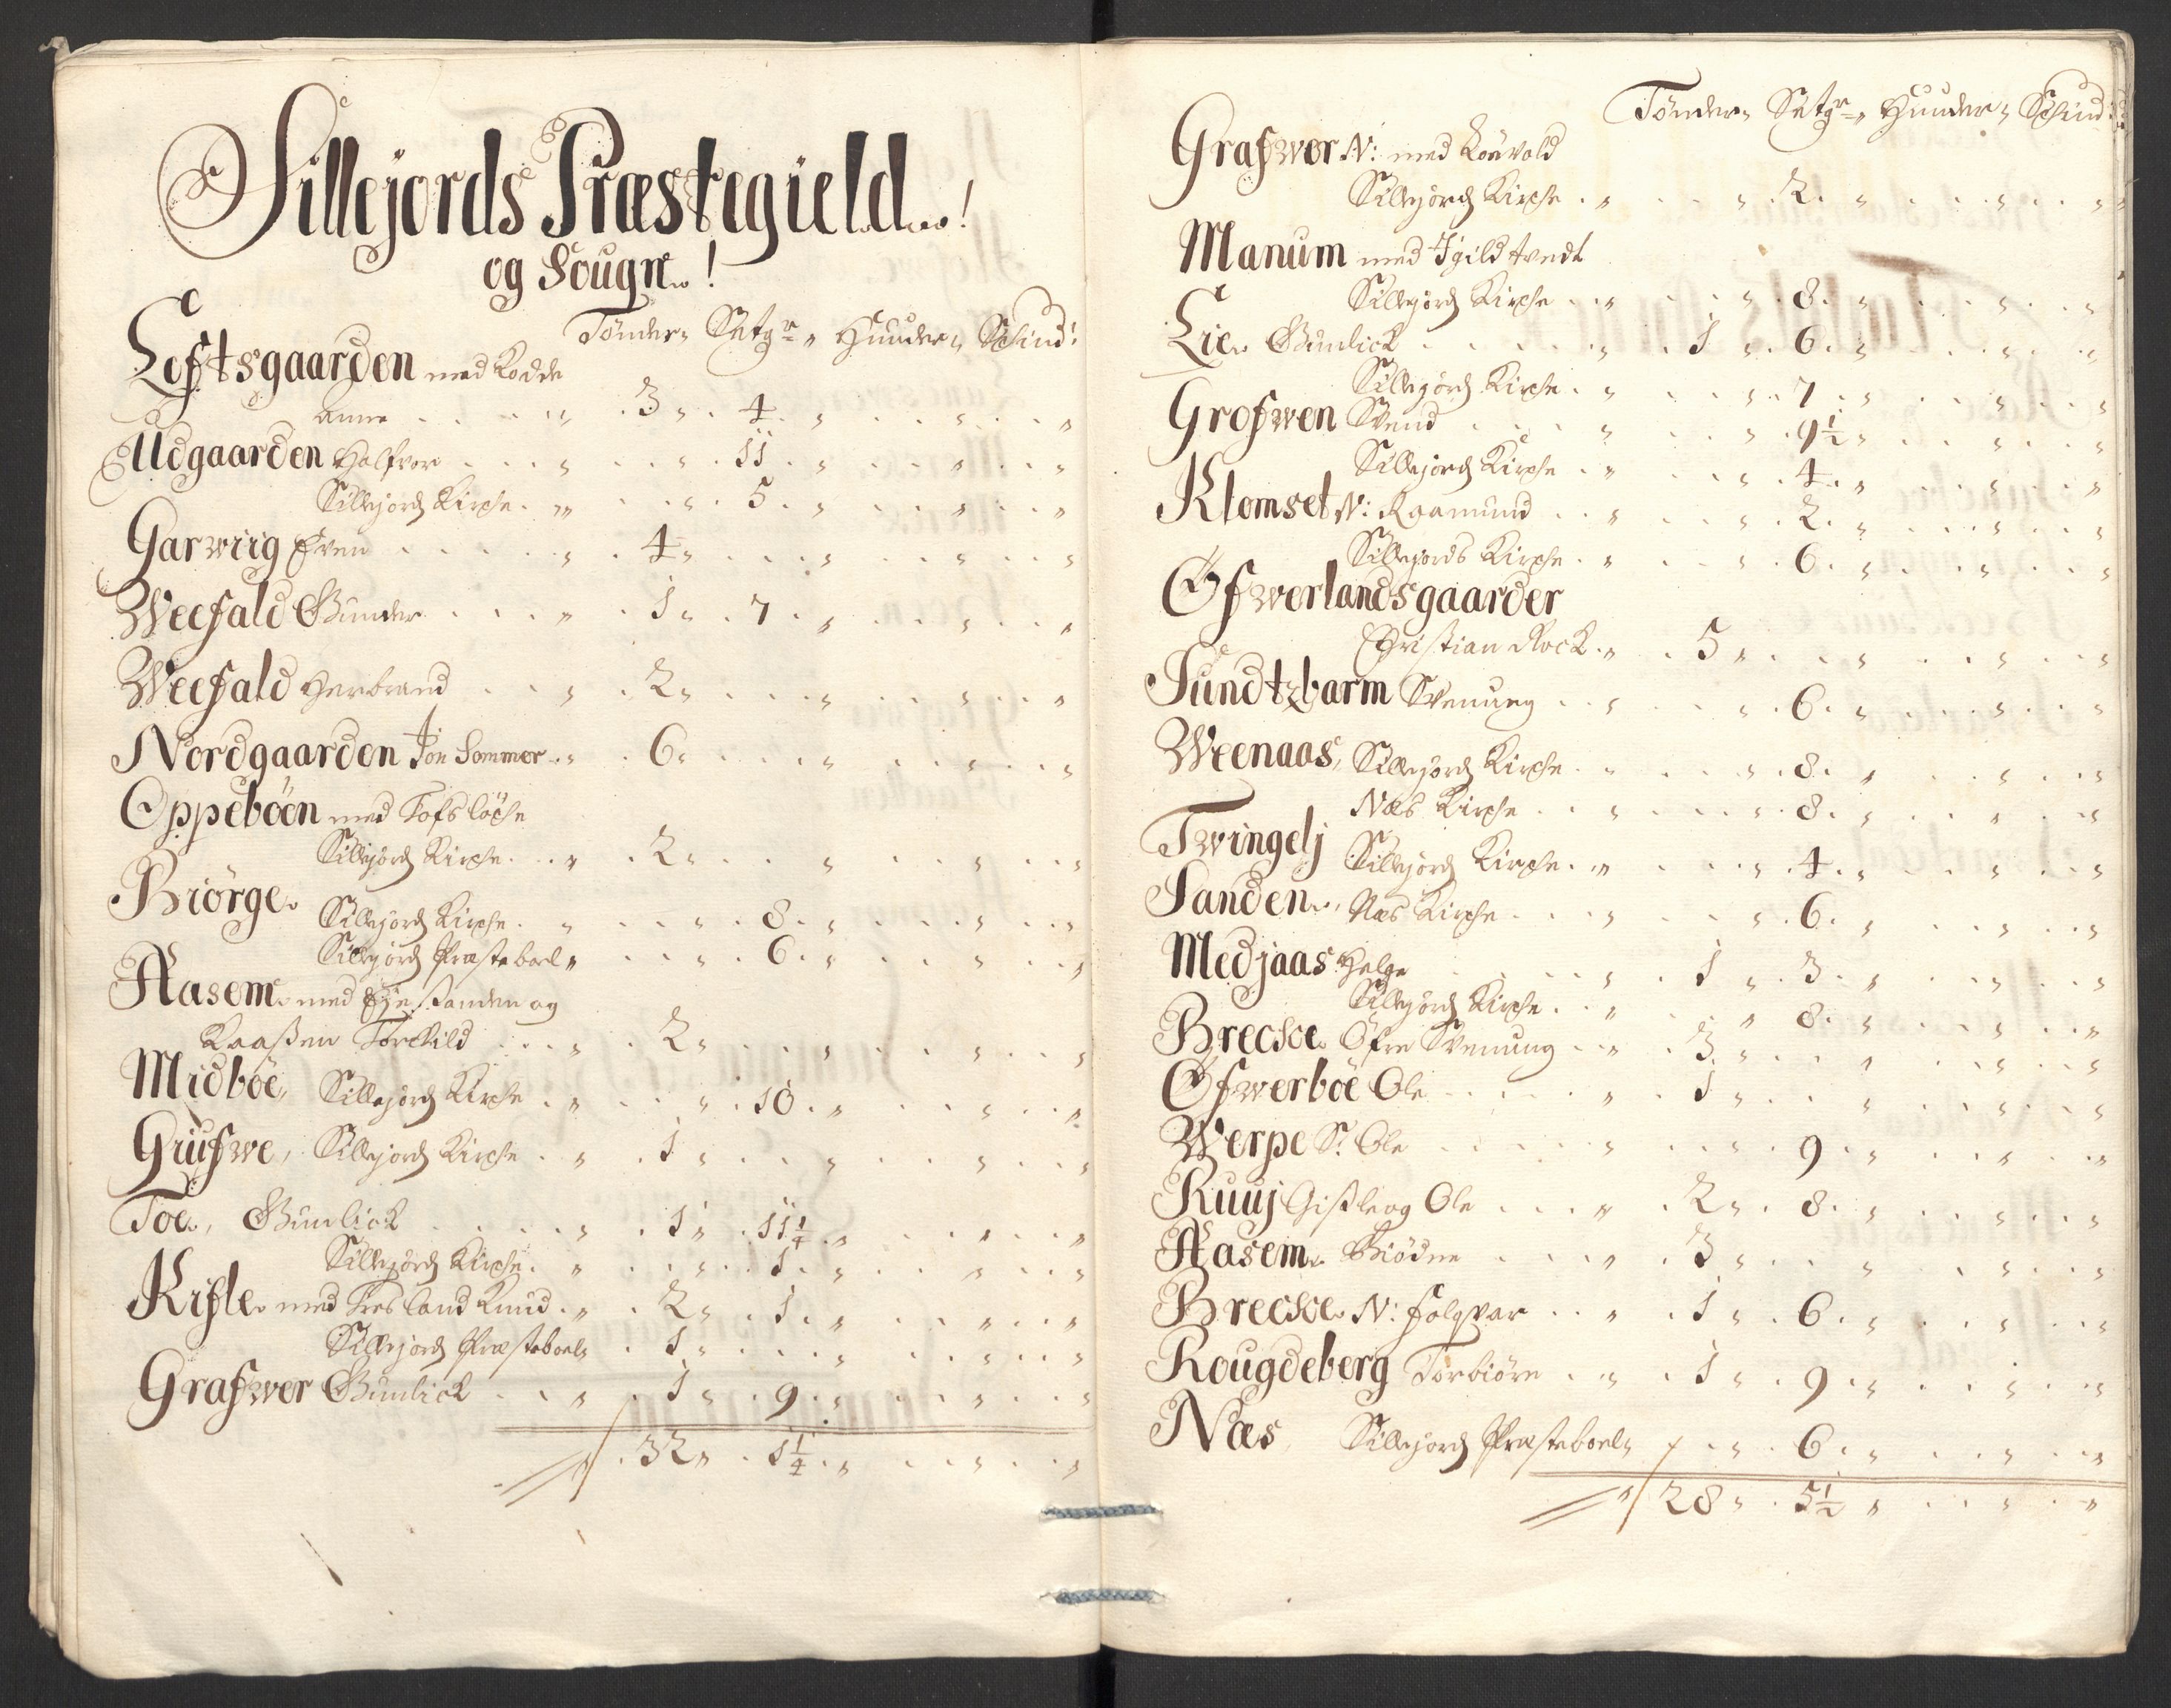 Sillejords Præstegield!
og Sougn!
Tønder Setgr Huuder Schind!
Loftsgaarden med Rodde
Anne 3 4
Udgaarden Halfvor 11
Sillejords Kirche 5
Garwiig Even 4
Weefald Gunder 1 7
Weefald Herbrand 2
Nordgaarden Jon Sommer 6
Oppebøen med Tofsløche
Sillejords Kirche 2
Biørge
Sillejords Kirche 8
Sillejords Præsteboel 6
Aasem med og
Kaaßen Torchild 2
Midbøe, Sillejords Kirche 10
Giufwe, Sillejords Kirche 1
Toe, Gunlich 1 11 1/4
Sillejords Kirche 1
Kifle med Fresland Knud 2 1
Sillejords Præsteboel 1
Grafwer Gunlich 1 9
32 1 1/4
Tønder Setgr Huuder Schind
Grafwer N: med Roevold
Sillejords Kirche 2
Manum med Igildtvedt
Sillejords Kirche 8
Lie Gunlich 1 6
Sillejords Kirche 7
Grofwen Svend 9 1/2
Sillejords Kirche 4
Klomset N: Roamund 2
Sillejords Kirche 6
Øfwerlandsgaarder
Christian Kock 5
Sundtzbarm Svenung 6
Weenaas, Sillejords Kirche 8
Næs Kirche 8
Twingelj
Sillejords Kirche 4
Sanden, Næs Kirche 6
Medjaas Helge 1 3
Sillejords Kirche 8
Brecke Øfre Svenung 3
Øfwerbøe Ole 1
Werpe S. Ole 9
Ruuj Gisle og Ole 2 8
Aasem Giødne 3
Brecke N: Folqvar 1 6
Rougdeberg Torbiørn 1 9
Næs Sillejords Præsteboel 6
28 5 1/2